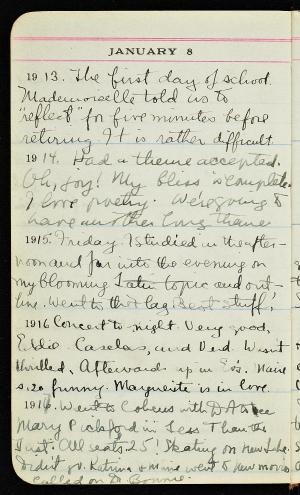 JANUARY 8
1913. The first day of school.
Mademoiselle told us to
"reflect" for five minutes before
retiring. It is rather difficult.
1914. Had a theme accepted.
Oh, joy! My bliss is complete.
I love poetry. We're going to
have another long theme
1915. Friday. I studied in the after-
noon and far into the evening on
my blooming Later topic and out-
line. Went to that lag. Best stuff!
1916 Concert to-night. Very good,
Caselas, and Ded. Wasn't
thrilled. Afterwards up in Ev's. Marie
s.zo funny. Marguerite is in love.
1917. Went to Cohens with D.A. to see
Mary Pickford in Less Than the
Dust. All seats 25! Skating on new Lake.
Didn't go. Katrina & mine went to new movies
Called on Dr. Bonnie.